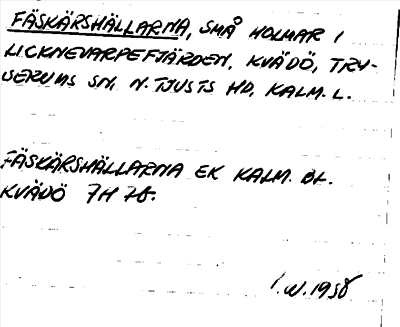 FÄSKÄRSHÄLLARNA, SMÅ HOLMAR I
LICKNEVARPEFJÄRDEN, KVÄDÖ, TRY-
SERUMS SN, N. TJUSTS HD, KALM. L.
FÄSKÄRSHÄLLARNA EK KALM. BL.
KVÄDÖ 7H 7b.
I.W. 1938